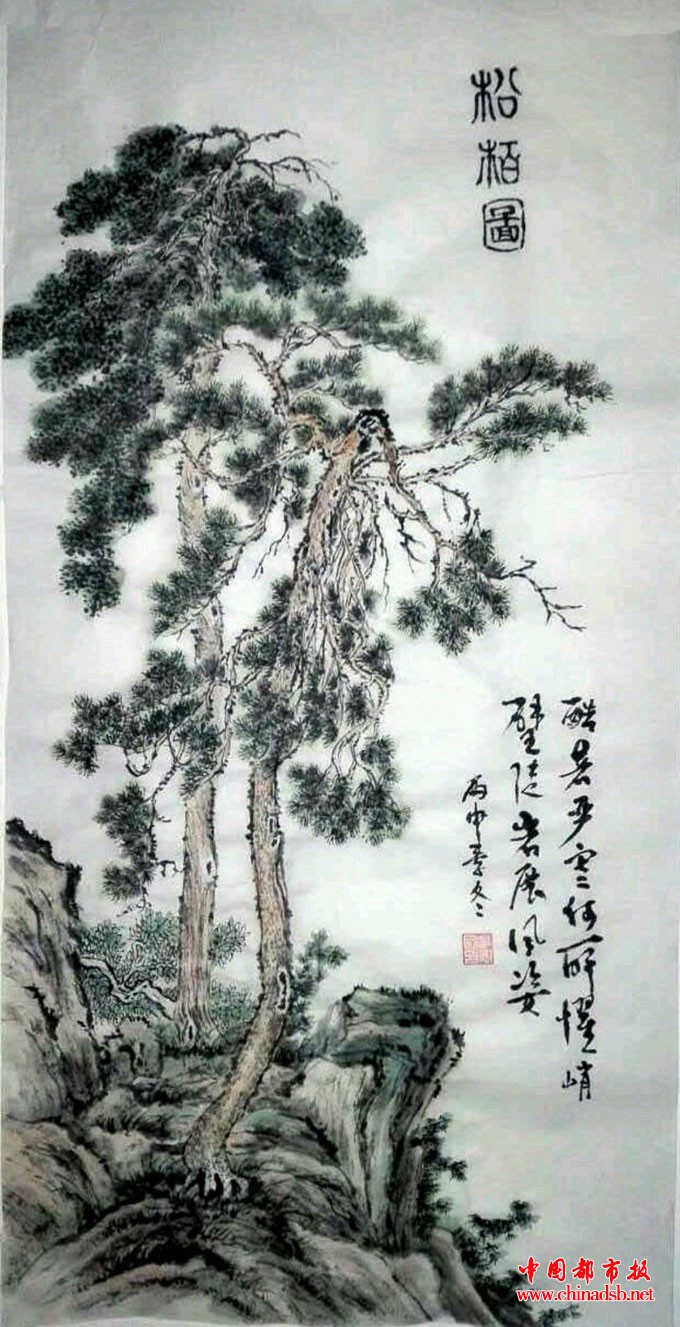 松柏圖
酷暑严寒何所惧峭
壁陡岩展风姿
丙申季冬
中国都市报
www.chinadsb.net